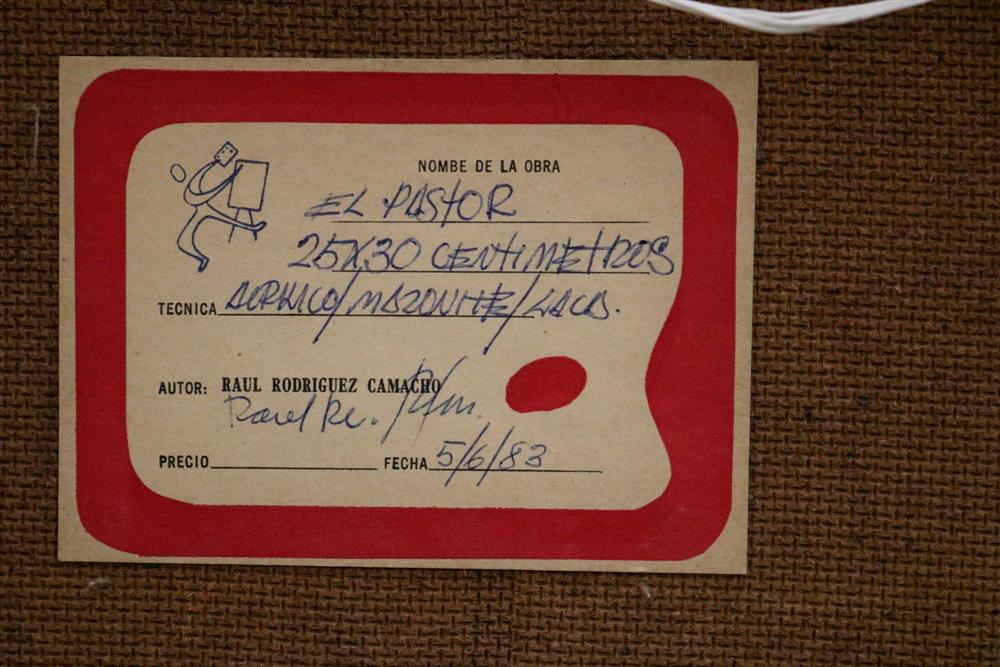 NOMBE DE LA OBRA
EL PASTOR
25X30 CENTIMETROS
TECNICA ACRILICO/MAZONITE/LACA.
AUTOR: RAUL RODRIGUEZ CAMACHO
PRECIO FECHA 5/6/83